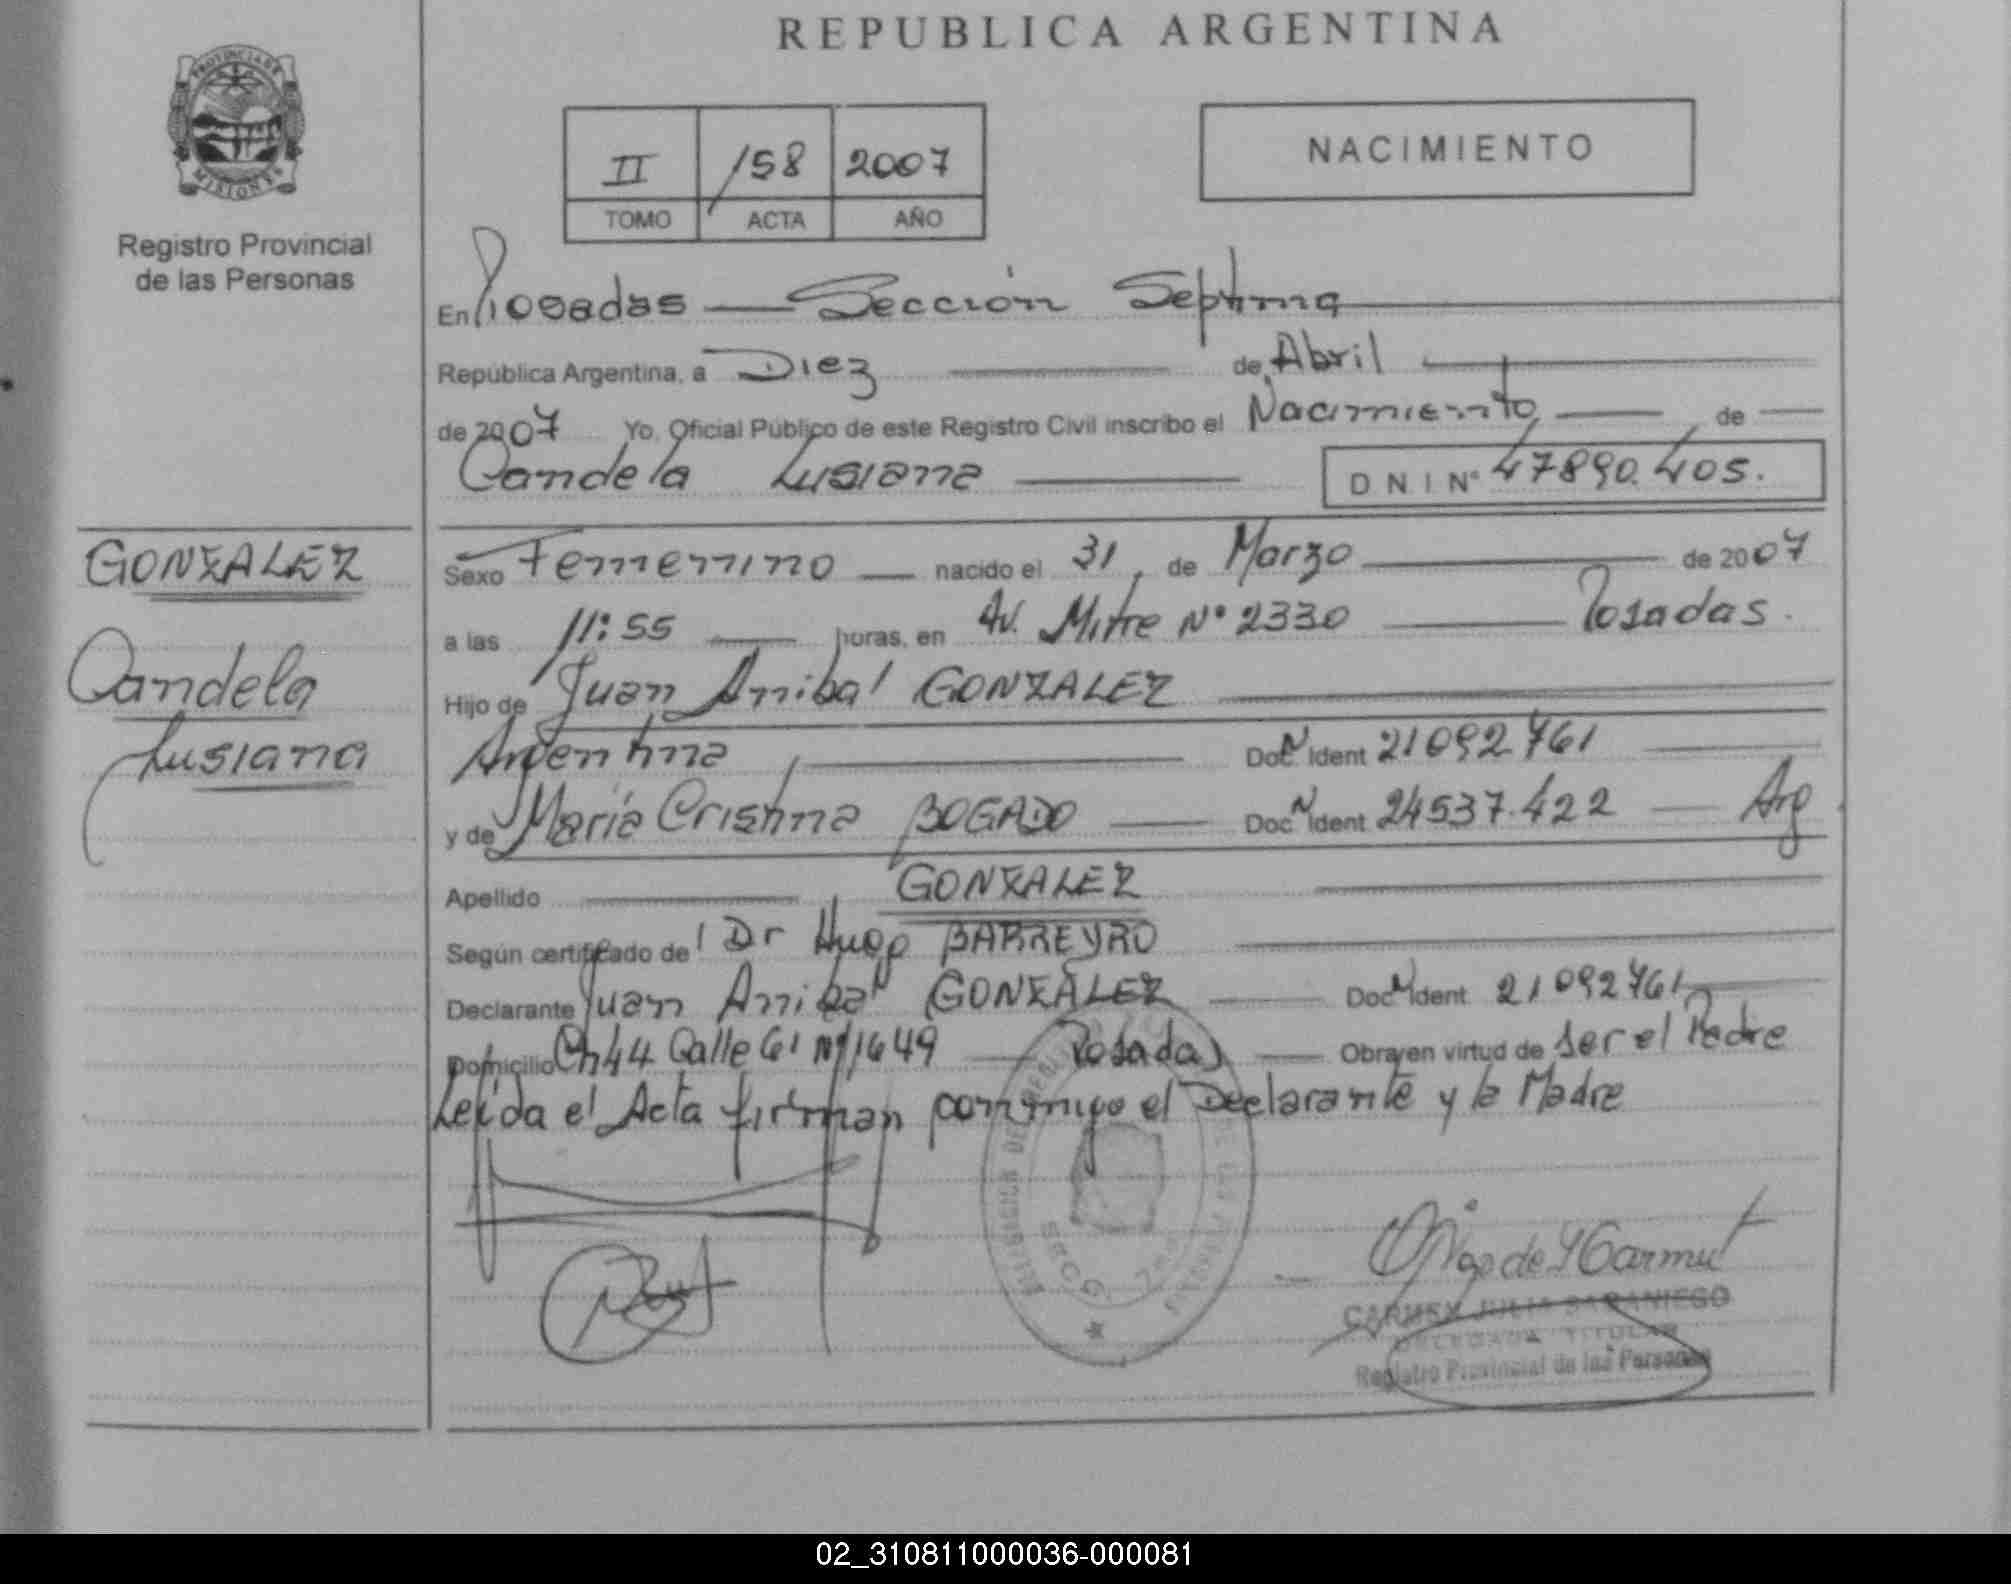 REPUBLICA ARGENTINA
PROVINCIA DE
MISIONES
Registro Provincial
de las Personas
II 158 2007
TOMO ACTA AÑO
NACIMIENTO
En Posadas — Sección Septima
República Argentina, a Diez de Abril
de 2007 Yo, Oficial Público de este Registro Civil inscribo el Nacimiento de
Candela Lusiana D N I Nº 47890.405.
GONZALEZ
Candela
Lusiana
Sexo Femenino nacido el 31 de Marzo de 2007
a las 11:55 horas, en Av. Mitre Nº 2330 Posadas.
Hijo de Juan Anibal GONZALEZ
Argentina Doc N Ident 21092761
y de María Cristina BOGADO Doc N Ident 24537.422 Arg
Apellido GONZALEZ
Según certificado del Dr Hugo BARREYRO
Declarante Juan Anibal GONZALEZ Doc N Ident 21092761
Domicilio Ch 44 Calle 61 Nº 1649 Posadas Obra en virtud de ser el Padre
Leída el Acta firman conmigo el Declarante y la Madre
CARMEN JULIA SAMANIEGO
DELEGADA TITULAR
Registro Provincial de las Personas
02_310811000036-000081